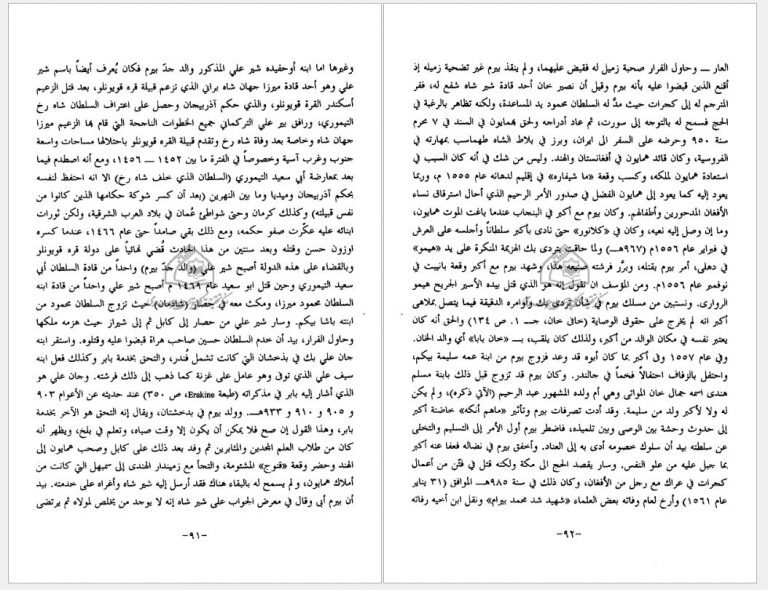 وغيرها اما ابنه أوحفيده شير علي المذكور والد جدّ بيرم فكان يُعرف أيضاً باسم شير
علي وهو أحد قادة ميرزا جهان شاه براني الذي تزعم قبيلة قره قويونلو، بعد قتل الزعيم
أسكندر القره قويونلو، والذي حكم آذربيجان وحصل على اعتراف السلطان شاه رخ
التيموري، ورافق بير علي التركماني جميع الخطوات الناجحة التي قام بها الزعيم ميرزا
جهان شاه وخاصة بعد وفاة شاه رخ وتقدم قبيلة القره قويونلو باحتلالها مساحات واسعة
جنوب وغرب آسية وخصوصاً في الفترة ما بين ١٤٥٢ — ١٤٥٦، ومع أنه اصطدم فيما
بعد بمعارضة أبي سعيد التيموري (السلطان الذي خلف شاه رخ) الا انه احتفظ لنفسه
بحكم آذربيجان وميديا وما بين النهرين (بعد أن كسر شوكة حكامها الذين كانوا من
نفس قبيلته) وكذلك كرمان وحتى شواطئ عُمان في بلاد العرب الشرقية، ولكن ثورات
ابنائه عليه عكّرت صفو حكمه، ومع ذلك بقي صامداً حتى عام ١٤٦٦، عندما كسره
اوزون حسن وقتله وبعد سنتين من هذا الحادث قُضي نهائياً على دولة قره قويونلو
وبالقضاء على هذه الدولة أصبح شير علي (والد جدّ بيرم) واحداً من قادة السلطان أبي
سعيد التيموري وحين قتل ابو سعيد عام ١٤٦٩ م أصبح شير علي واحداً من قادة ابنه
السلطان محمود ميرزا، ومكث معه في حصار (شادمان) حيث تزوج السلطان محمود من
ابنته باشا بيكم. وسار شير علي من حصار إلى كابل ثم إلى شيراز حيث هزمه ملكها
وحاول الفرار، بيد أن خدم السلطان حسين صاحب هراة قبضوا عليه وقتلوه. واستقر ابنه
جان علي بك في بدخشان التي كانت تشمل قُندز، والتحق بخدمة بابر وكذلك فعل ابنه
سيف علي الذي توفى وهو عامل على غزنة كما ذهب إلى ذلك فرشته. وجان علي هو
الذي أشار إليه بابر في مذكراته (طبعة Erakine، ص ٣٥٠) عند حديثه عن الأعوام ٩٠٣
و ٩٠٥ و ٩١٠ و ٩٣٣هـ. وولد بيرم في بدخشتان، ويقال إنه التحق هو الآخر بخدمة
بابر، وهذا القول إن صح فلا يمكن أن يكون إلا وقت صباه، وتعلم في بلخ، ويظهر أنه
كان من طلاب العلم المجدين والمثابرين ثم وفد بعد ذلك على كابل وصحب همايون إلى
الهند وحضر وقعة «قنوج» المشئومة، والتجأ مع زميندار الهندى إلى سمبهل التي كانت من
أملاك همايون، ولم يسمح له بالبقاء هناك فقد أرسل إليه شير شاه وأغراه على خدمته. بيد
أن بيرم أبى وقال في معرض الجواب على شير شاه إنه لا يوجد من يخلص لمولاه ثم يرتضى
-٩١-
العار — وحاول الفرار صحبة زميل له فقبض عليهما، ولم ينقذ بيرم غير تضحية زميله إذ
أقنع الذين قبضوا عليه بأنه بيرم وقيل أن نصير خان أحد قادة شير شاه شفع له، ففر
المترجم له إلى كجرات حيث مدَّ له السلطان محمود يد المساعدة، ولكنه تظاهر بالرغبة في
الحج فسمح له بالتوجه إلى سورت، ثم عاد أدراجه ولحق بهمايون في السند في ٧ محرم
سنة ٩٥٠ وحرضه على السفر الى ايران، وبرز في بلاط الشاه طهماسب بمهارته في
الفروسية، وكان قائد همايون في أفغانستان والهند. وليس من شك في أنه كان السبب في
استعادة همايون لملكه، وكسب وقعة «ما شيفاره» في إقليم لدهانه عام ١٥٥٥ م، وربما
يعود إليه كما يعود إلى همايون الفضل في صدور الأمر الرحيم الذي أحال استرقاق نساء
الأفغان المدحورين وأطفالهم. وكان بيرم مع أكبر في البنجاب عندما باغت الموت همايون،
وما إن وصل إليه نعيه، وكان في «كلانور» حتى نادى بأكبر سلطاناً وأجلسه على العرش
في فبراير عام ١٥٥٦م (٩٦٧هـ)... ولما حاقت بتردى بك الهزيمة المنكرة على يد «هيمو»
في دهلى، أمر بيرم بقتله، وبرَّر فرشته صنيعه هذا، وشهد بيرم مع أكبر وقعة بانيبت في
نوفمبر عام ١٥٥٦م. ومن المؤسف ان نقول إنه هو الذي قتل بيده الأسير الجريح هيمو
الروارى. ونستبين من مسلك بيرم في شأن تردى بك وأوامره الدقيقة فيما يتصل بملاهى
أكبر انه لم يخرج على حقوق الوصاية (خافى خان، جـ ١. ص ١٣٤) والحق أنه كان
يعتبر نفسه في مكان الوالد من أكبر، ولذلك كان يلقب، بـ «خان بابا» أي والد الخان.
وفي عام ١٥٥٧ وفى أكبر بما كان أبوه قد وعد فزوج بيرم من ابنة عمه سليمة بيكم،
واحتفل بالزفاف احتفالاً فخماً في جالندر. وكان بيرم قد تزوج قبل ذلك بابنة مسلم
هندى اسمه جمال خان المواتى وهي أم ولده المشهور عبد الرحيم (الآتي ذكره)، ولم يكن
له ولا لأكبر ولد من سليمة. وقد أدت تصرفات بيرم وتأثير «ماهم أنكه» حاضنة أكبر
إلى حدوث وحشة بين الوصى وبين تلميذه، فاضطر بيرم أول الأمر إلى التسليم والتخلى
عن سلطته بيد أن سلوك خصومه أدى به إلى العناد. وأخفق بيرم في نضاله فعفا عنه أكبر
بما جبل عليه من علو النفس. وسار يقصد الحج الى مكة ولكنه قتل في فتّن من أعمال
كجرات في عراك مع رجل من الأفغان، وكان ذلك في سنة ٩٨٥هـ الموافق (٣١ يناير
عام ١٥٦١) وأرخ لعام وفاته بعض العلماء «شهيد شد محمد بيرام» ونقل ابن أخيه رفاته
-٩٢-